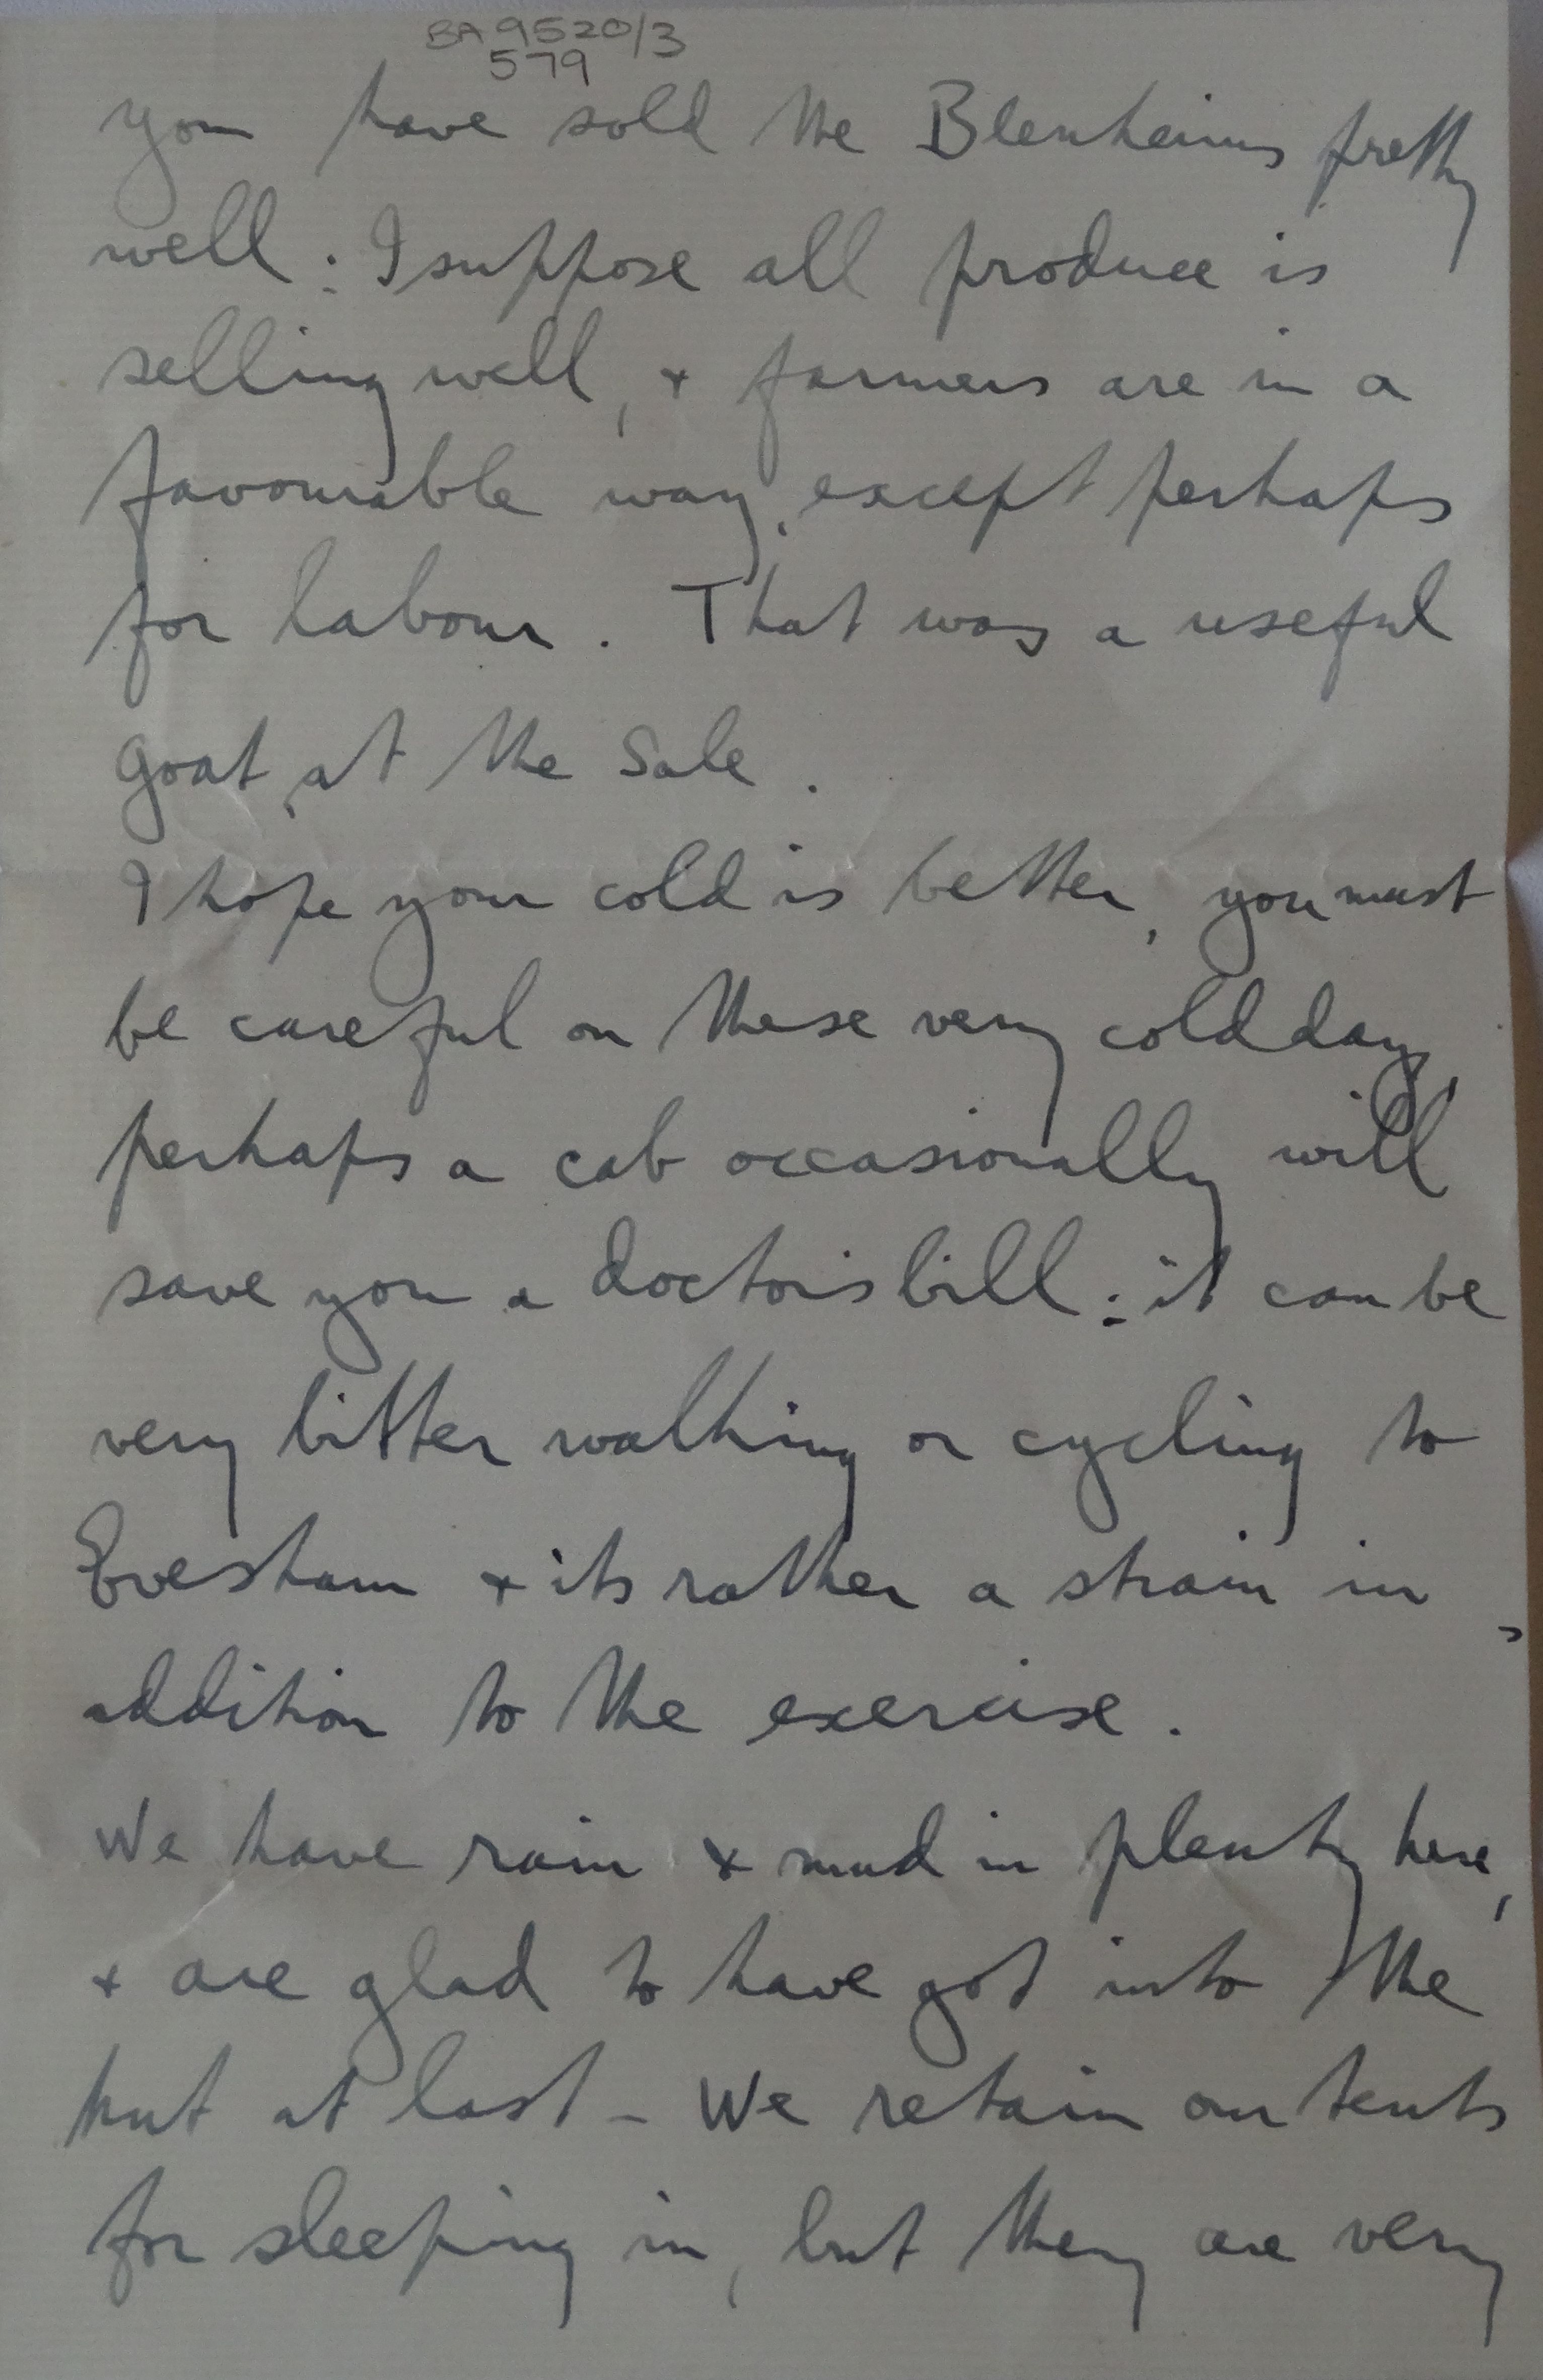 BA 9520/3
579
you have sold the Blenheims pretty
well : I suppose all produce is
selling well, + farmers are in a
favourable way, except perhaps
for labour. That was a useful
goat at the Sale.
I hope your cold is better, you must
be careful on these very cold days,
perhaps a cab occasionally will
save you a doctor's bill : it can be
very bitter walking or cycling to
Evesham + its rather a strain in
addition to the exercise.
We have rain & mud in plenty here,
+ are glad to have got into the
hut at last - We retain our tents
for sleeping in, but they are very